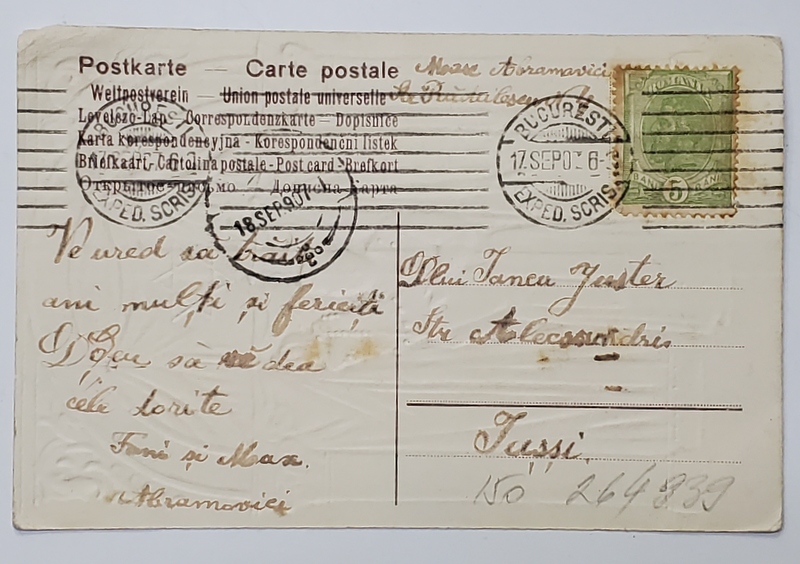 Postkarte — Carte postale
Weltpostverein — Union postale universelle
Levelezo-Lap — Correspondenzkarte — Dopisnice
Karta korespondencyjna - Korespondenčni listek
Briefkaart - Cartolina postale - Post card - Brefkort
Открытое письмо — Дописна карта
Moase Abramovici
ROMANIA
BANI 5 BANI
BUCUREȘTI
17 SEP 07 6-
EXPED. SCRIS.
BUCUREȘTI
EXPED. SCRIS.
18 SEP 907
Ve ured sa traiți
ani mulți și fericiți
D Deu să vĕ dea
cele dorite
Fani și Max
Abramovici
Dlui Iancu Juster
Str Alecsandri
Iașși
150 264839